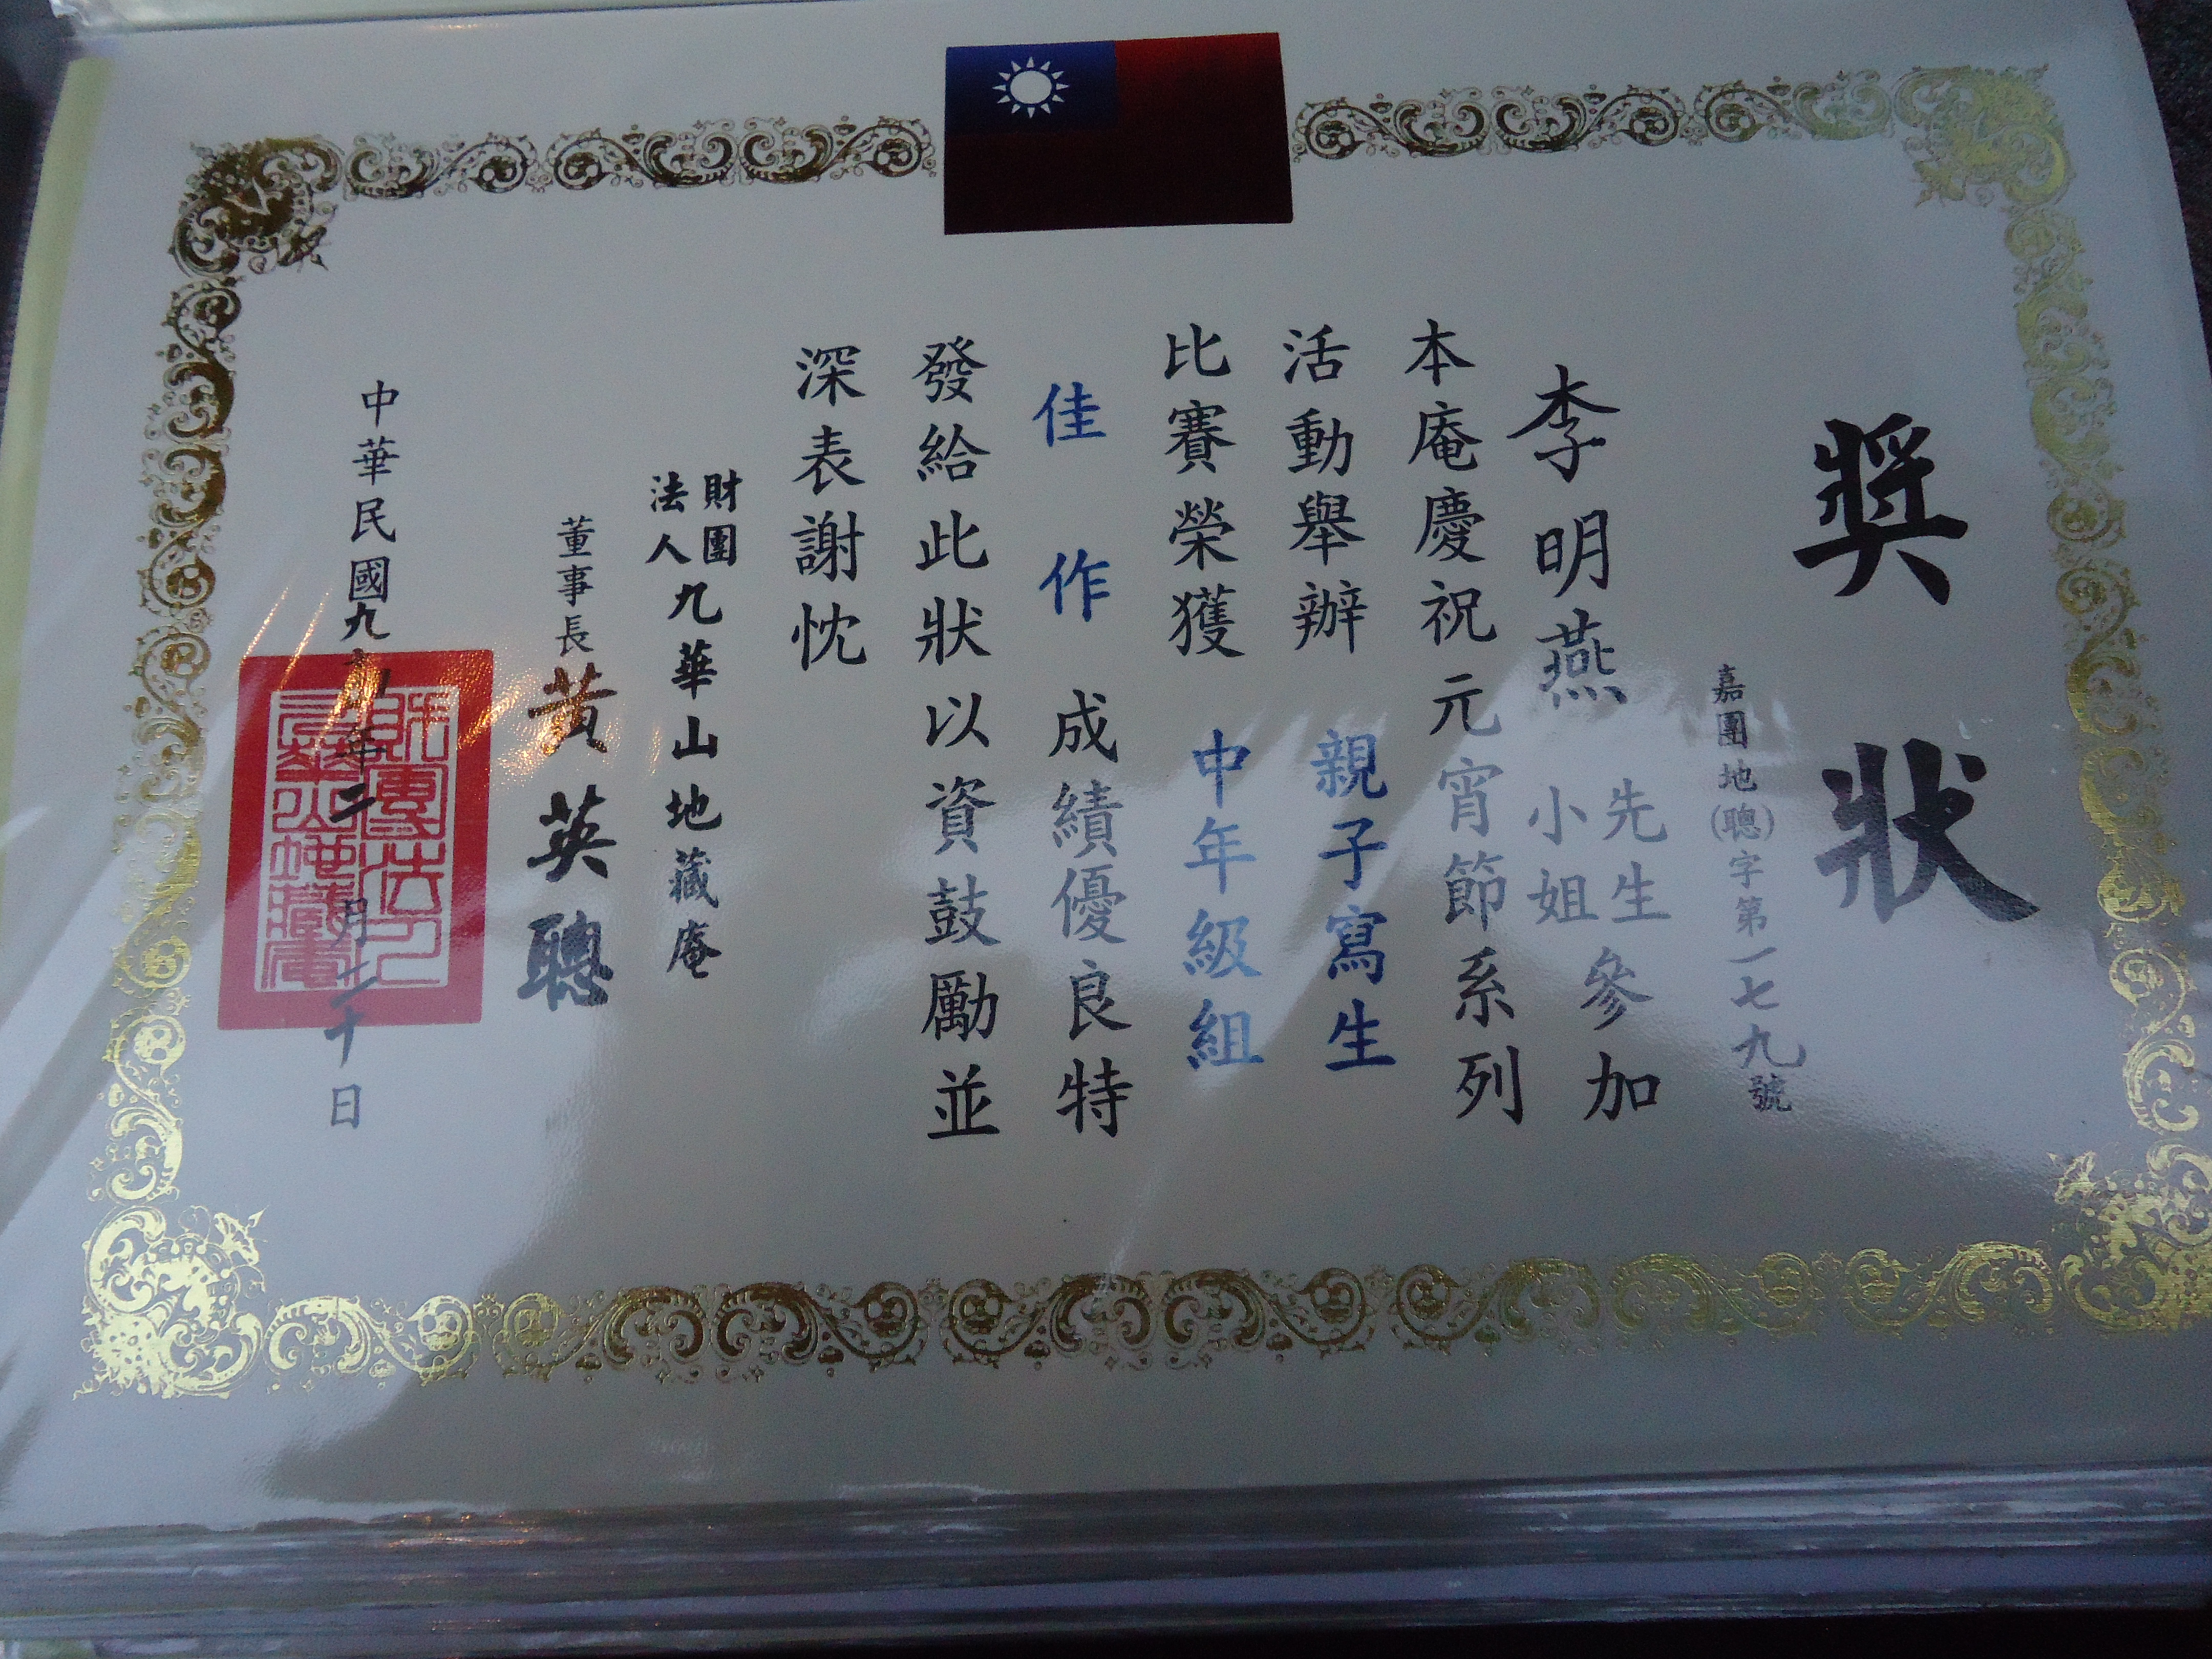 獎狀
嘉團地(聰)字第一七九號
李明燕 先生 小姐 參加
本庵慶祝元宵節系列
活動舉辦 親子寫生
比賽榮獲 中年級組
佳作 成績優良特
發給此狀以資鼓勵並
深表謝忱
財團法人九華山地藏庵
董事長 黃英聰
中華民國九十年二月二十日